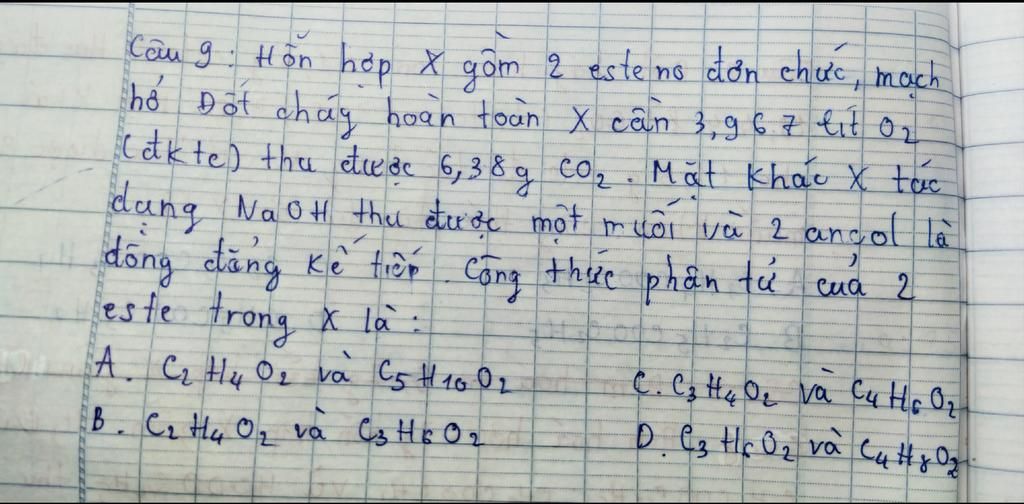 Câu 9: Hỗn hợp X gồm 2 este no đơn chức, mạch
hở Đốt cháy hoàn toàn X cần 3,967 lít O2
(đktc) thu được 6,38g CO2. Mặt khác X tác
dụng NaOH thu được một muối và 2 ancol là
đồng đẳng kế tiếp. Công thức phân tử của 2
este trong X là:
A. C2H4O2 và C5H10O2 C. C3H4O2 và C4H6O2
B. C2H4O2 và C3H6O2 D. C3H6O2 và C4H8O2